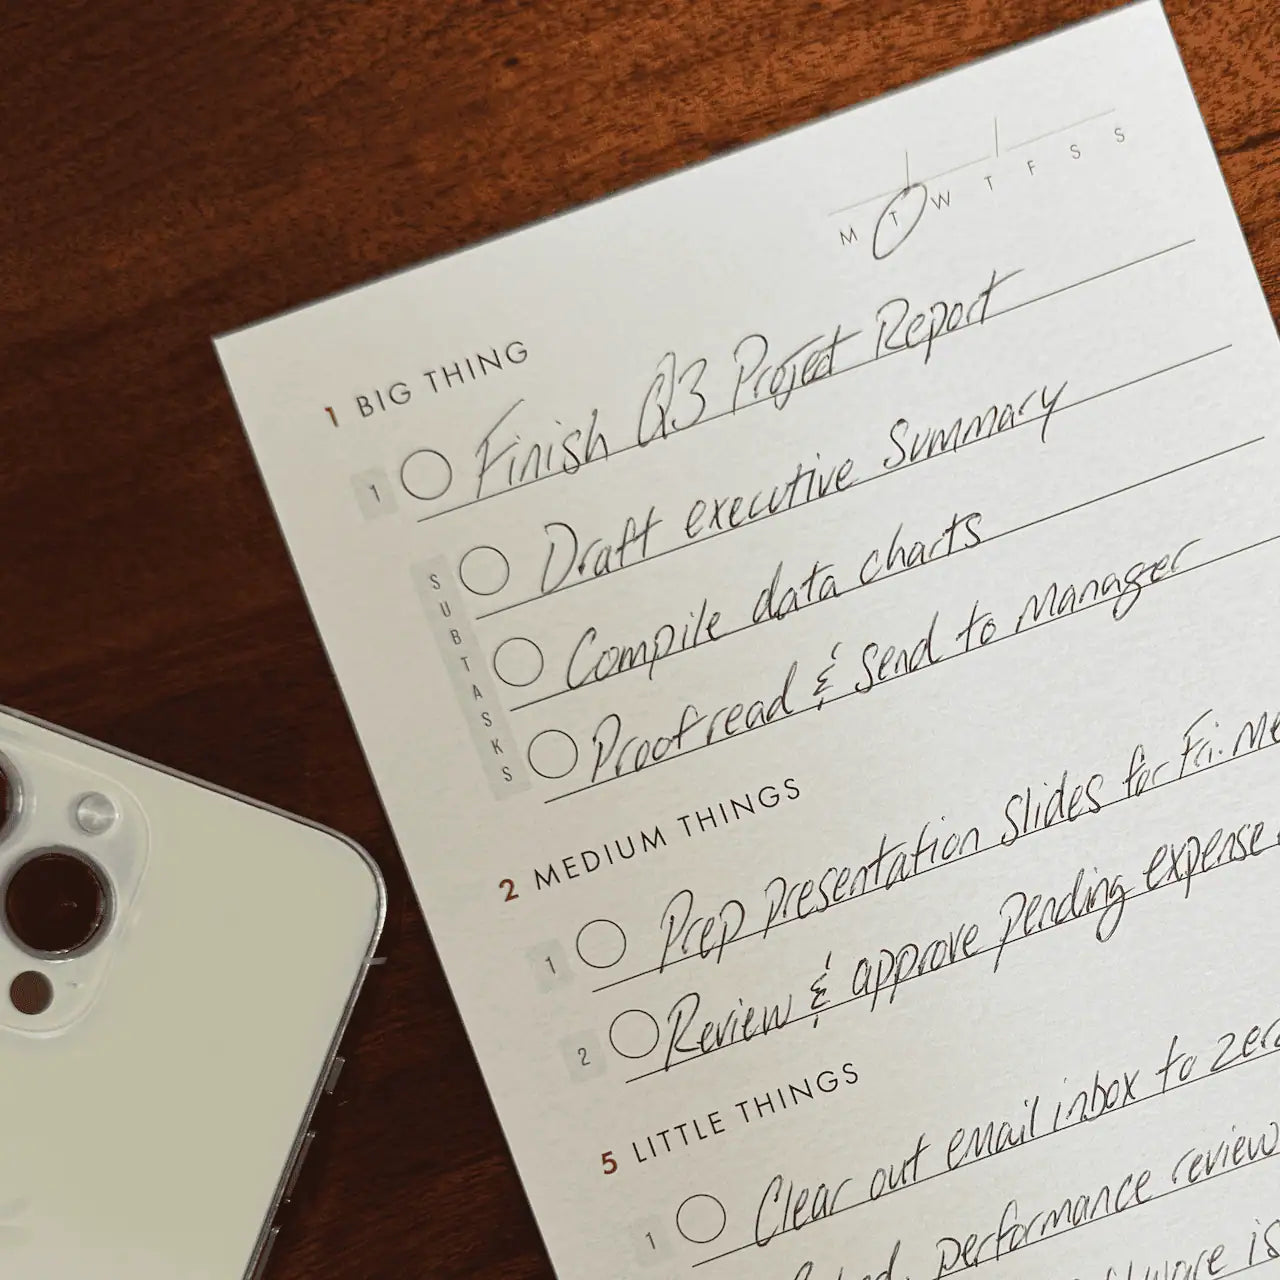 M T W T F S S
1 BIG THING
1 Finish Q3 Project Report
SUBTASKS
Draft executive Summary
Compile data charts
Proofread & Send to Manager
2 MEDIUM THINGS
1 Prep presentation Slides for Fri.
2 Review & approve pending expense
5 LITTLE THINGS
1 Clear out email inbox to zero
performance review
is